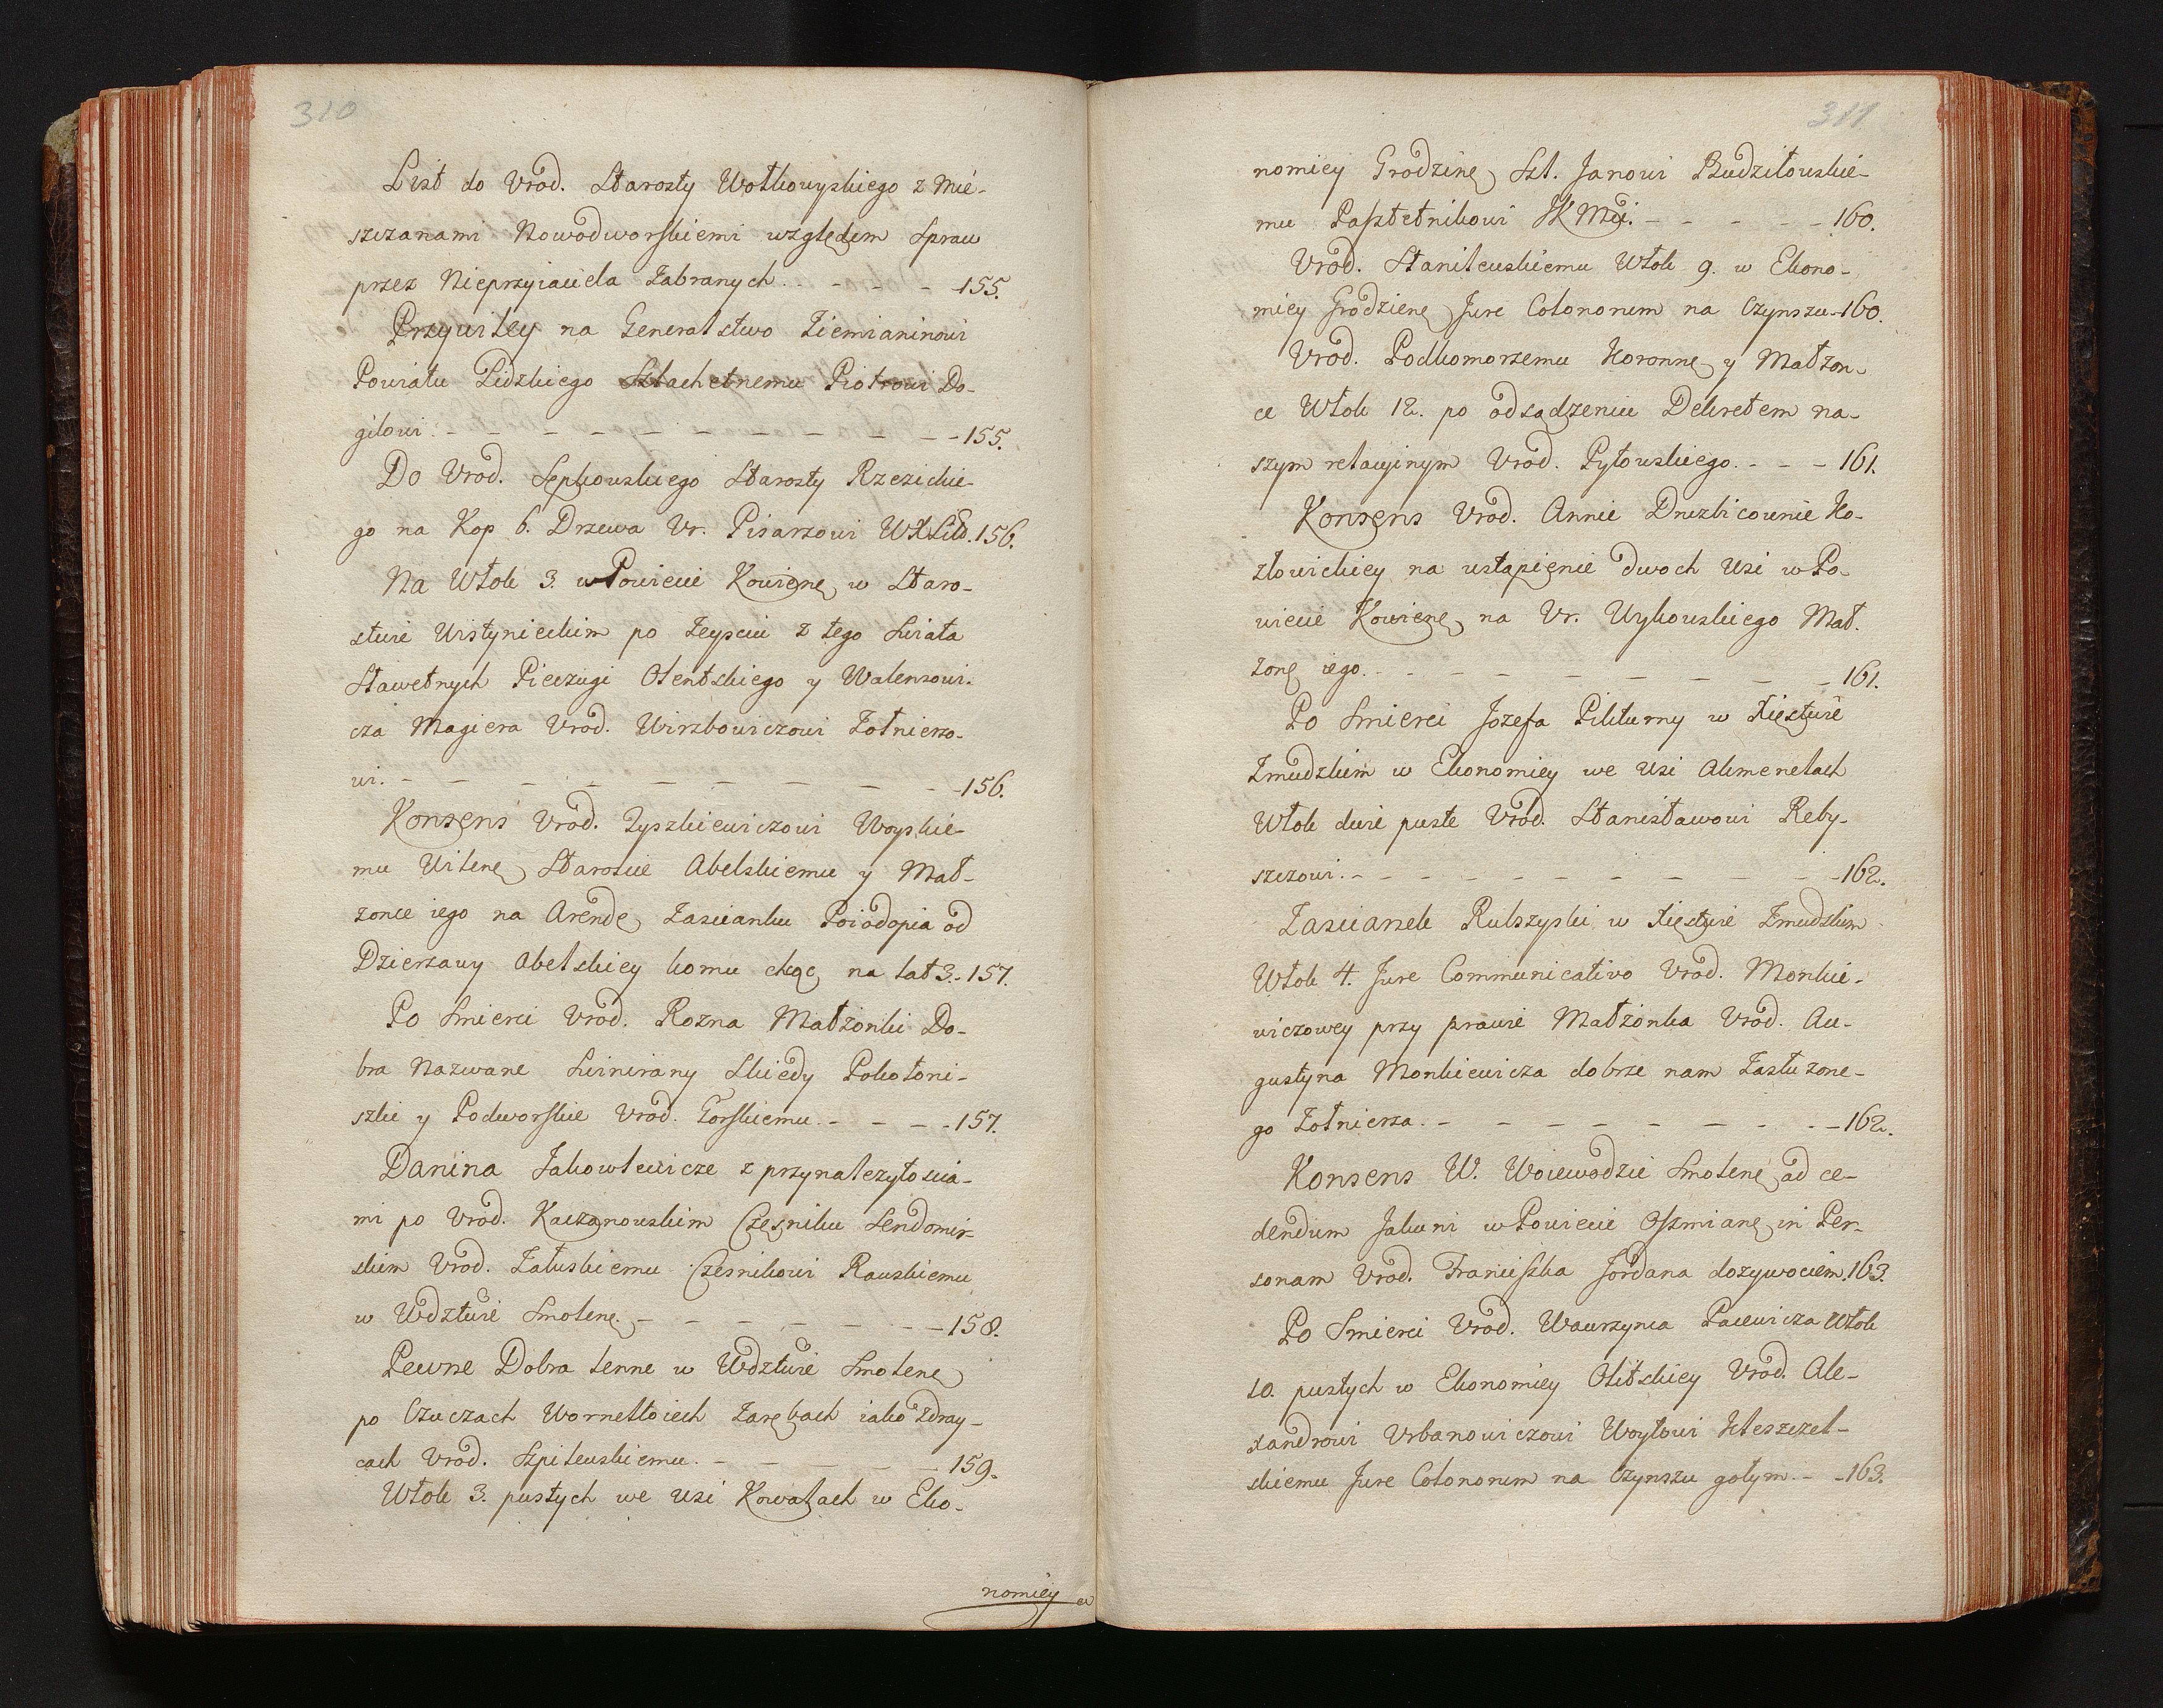 310
List do Vrod. Starosty Wołkowyskiego z Mie-
szczanami Nowodworskiemi względem Spraw
przez Nieprzyiaciela Zabranych. - - - - 155.
Przywiley na Generalstwo Ziemianinowi
Powiatu Lidzkiego Szlachetnemu Piotrowi Do-
gilowi. - - - - - - - - - - 155.
Do Vrod. Sephowskiego Starosty Rzezickie-
go na Kop 6. Drzewa Vr. Pisarzowi WXLitt. 156.
Na Włok 3. w Powiecie Kowienę w Staro-
stwie Wistynieckim po Zeysciu z tego Swiata
Sławetnych Pieczugi Olentskiego y Walenzowi-
cza Magiera Vrod. Wirzbowiczowi Zołnierzo-
wi. - - - - - - - - - - 156.
Konsens Vrod. Tyszkiewiczowi Woyskie-
mu Wilenę Staroscie Abelskiemu y Mał-
zonce iego na Arendę Zascianku Poiodopia od
Dzierzawy Abelskiey komu chcąc na lat 3. - 157.
Po Smierci Vrod. Rozna Małzonki Do-
bra Nazwane Swirnirany Skiedy Pokołoni-
szki y Podworskie Vrod. Gorskiemu. - - - - 157.
Danina Jakowlewicze z przynalezytoscia-
mi po Vrod. Kaczanowskim Czesniku Sendomir-
skim Vrod. Załuskiemu Czesnikowi Rawskiemu
w Wdztwie Smolenę. - - - - - - 158.
Pewne Dobra lenne w Wdztwie Smolenę
po Czuczach Wornełłoiech Zarębach iako Zdray-
cach Vrod. Szpilewskiemu. - - - - - 159.
Włok 3. pustych we Wsi Kowalach w Eko-
nomiey
311
nomiey Grodzinę Szl. Janowi Budziłowskie-
mu Pasztetnikowi JKMci. - - - - - 160.
Vrod. Stanilewskiemu Włok 9. w Ekono-
miey Grodzienę Jure Colonorum na Czynszu - 160.
Vrod. Podkomorzemu Koronnę y Małzon-
ce Włok 12. po odsądzeniu Dekretem na-
szym relacyinym Vrod. Pyłowskiego. - - - 161.
Konsens Vrod. Annie Druzbicownie Ko-
złowickiey na ustąpienie dwoch Wsi w Po-
wiecie Kowienę na Vr. Wykowskiego Mał-
zonę iego. - - - - - - - - - 161.
Po Smierci Jozefa Pikturny w Xięstwie
Zmudzkim w Ekonomiey we Wsi Akmenelach
Włok dwie puste Vrod. Stanisławowi Reby-
szczowi. - - - - - - - - - - 162.
Zascianek Rukszyski w Xięstwie Zmudzkim
Włok 4. Jure Communicativo Vrod. Monkie-
wiczowey przy prawie Małzonka Vrod. Au-
gustyna Monkiewicza dobrze nam Zasłuzone-
go Zołnierza. - - - - - - - - - 162.
Konsens W. Woiewodzie Smolenę ad ce-
dendum Jakuni w Powiecie Oszmianę in Per-
sonam Vrod. Franciszka Jordana dozywociem. 163.
Po Smierci Vrod. Wawrzynca Pacewicza Włok
10. pustych w Ekonomiey Olitskiey Vrod. Ale-
xandrowi Vrbanowiczowi Woytowi Kleszczel-
skiemu Jure Colonorum na Czynszu gołym. - - 163.